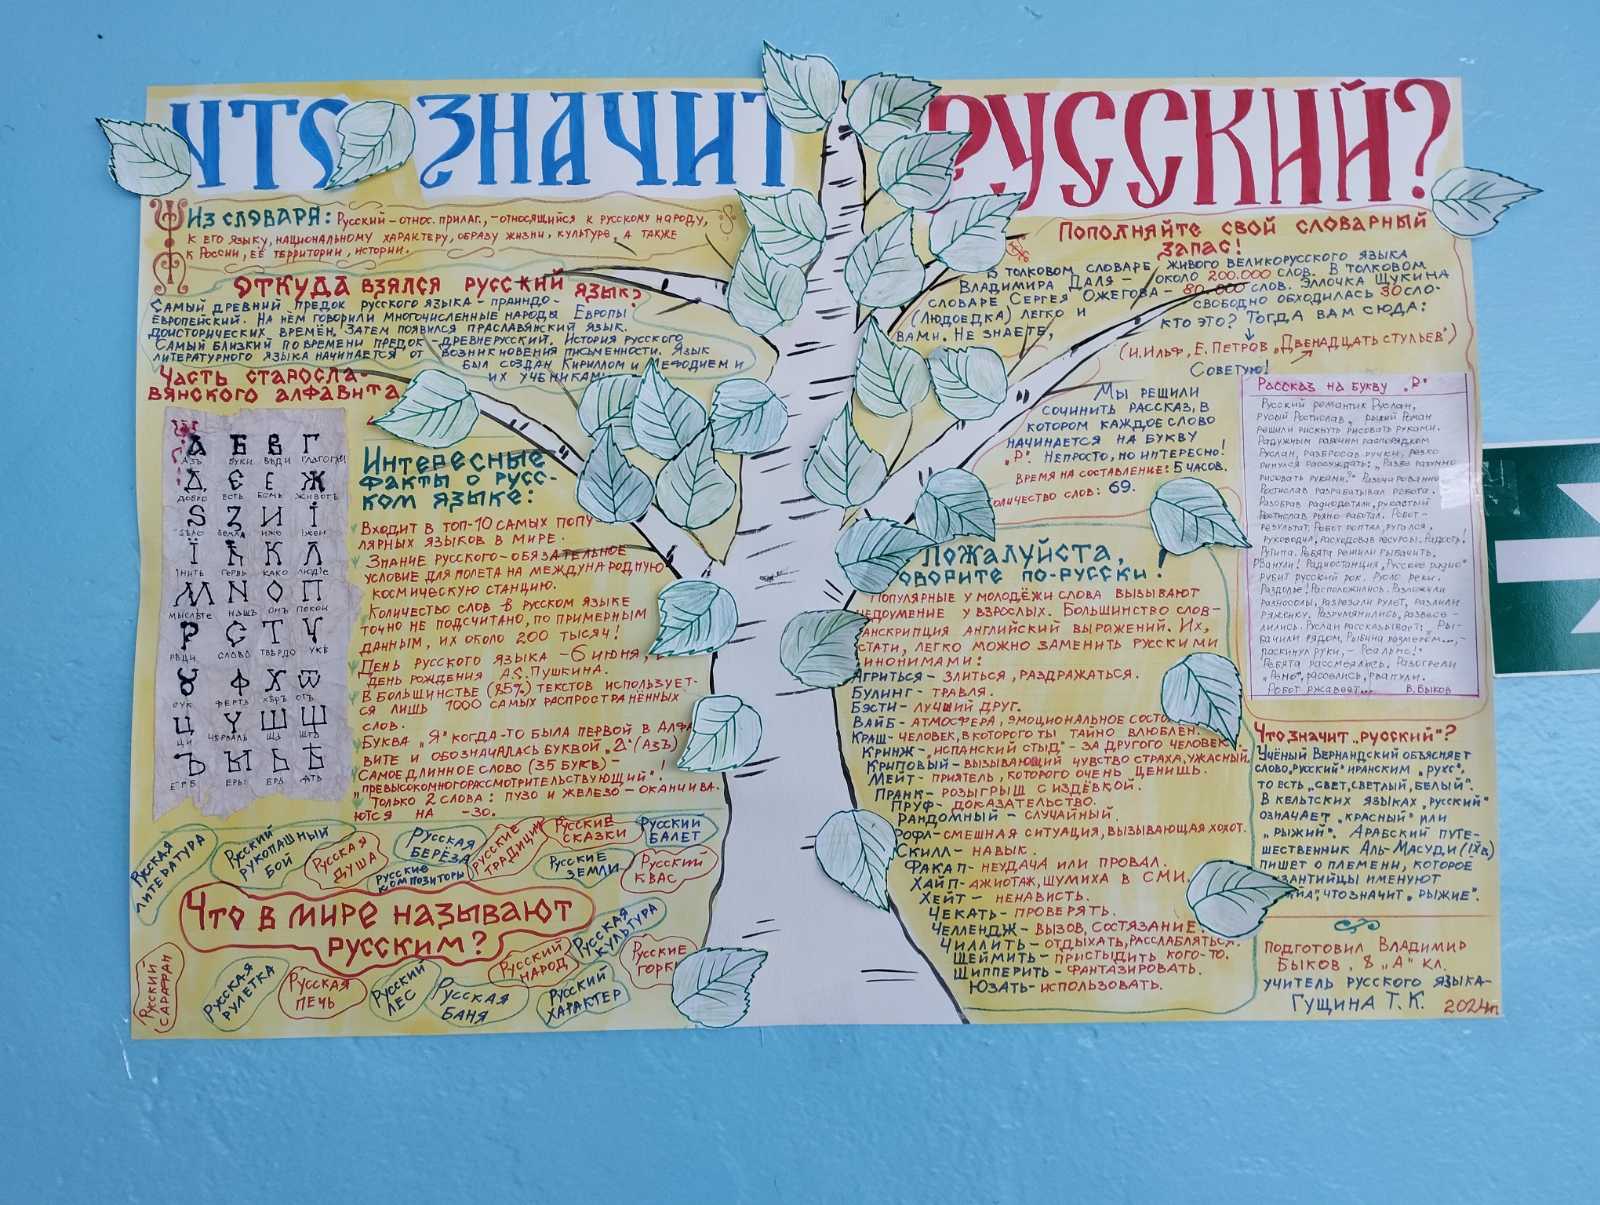 ЧТО ЗНАЧИТ РУССКИЙ?
Из словаря: Русский – относ. прилаг., – относящийся к русскому народу,
к его языку, национальному характеру, образу жизни, культуре, а также
к России, её территории, истории.
Откуда взялся русский язык?
Самый древний предок русского языка – праиндо-
европейский. На нём говорили многочисленные народы Европы
доисторических времён. Затем появился праславянский язык.
Самый близкий по времени предок – древнерусский. История русского
литературного языка начинается от возникновения письменности. Язык
был создан Кириллом и Мефодием и
их учениками
Часть старосла-
вянского алфавита
А Б В Г
АЗЪ БУКИ ВѢДИ ГЛАГОЛИ
Д Є Е Ж
ДОБРО ЕСТЬ ЕСМЬ ЖИВОТЪ
Ѕ З И І
ЗЕМЛЯ ИЖЕ
Ї Ћ К Л
ГЕРВЬ КАКО ЛЮДІЕ
М N О П
МЫСЛѢТЕ НАШЪ ОНЪ ПОКОИ
Р С Т У
РЦИ СЛОВО ТВЕРДО УКЪ
Ф Х Ѿ
ОУК ФЕРТЪ ХѢРЪ ОТЪ
Ц Ч Ш Щ
ЦИ ЧЕРВЛЬ ША ШТА
Ъ Ы Ь Ѣ
ЕРЪ ЕРЫ ЕРЬ ЯТЬ
Интересные
факты о рус-
ском языке:
Входит в топ-10 самых попу-
лярных языков в мире.
Знание русского – обязательное
условие для полета на международную
космическую станцию.
Количество слов в русском языке
точно не подсчитано, по примерным
данным, их около 200 тысяч!
День русского языка – 6 июня,
день рождения А.С. Пушкина.
В большинстве (85%) текстов использует-
ся лишь 1000 самых распространённых
слов.
Буква "Я" когда-то была первой в алфа
вите и обозначалась буквой (Азъ)
Самое длинное слово (35 букв) –
"превысокомногорассмотрительствующий"!
Только 2 слова: пузо и железо – оканчива-
ются на -зо.
Русская литература
Русский рукопашный бой
Русская душа
Русская берёза
Русские композиторы
Русские традиции
Русские сказки
Русский балет
Русские земли
Русский квас
Что в мире называют
русским?
Русский сарафан
Русская рулетка
Русская печь
Русский лес
Русская баня
Русский народ
Русская культура
Русский характер
Русские горки
Пополняйте свой словарный
запас!
В толковом словаре живого великорусского языка
Владимира Даля – около 200.000 слов. В толковом
словаре Сергея Ожегова – 80.000 слов. Эллочка Щукина
(Людоедка) легко и свободно обходилась 30 сло-
вами. Не знаете, кто это? Тогда вам сюда:
(И. Ильф, Е. Петров "Двенадцать стульев")
Советую!
Мы решили
сочинить рассказ, в
котором каждое слово
начинается на букву
"Р". Непросто, но интересно!
Время на составление: 5 часов.
Количество слов: 69.
Рассказ на букву "Р"
Русский романтик Руслан,
русый Ростислав, рыжий Роман
решили рискнуть рисовать руками.
Радужным рабочим распорядком
Руслан, разбросав ручки, резко
ринулся рассуждать: "Разве разумно
рисовать руками?" Разочарованный
Ростислав разрабатывал робота.
Разобрав радиодетали, рукастый
Ростислав рьяно работал. Робот –
результат. Робот роптал, ругался,
руководил, расходовал ресурсы. Радость!
Рутина. Ребята решили рыбачить.
Рванули! Радиостанция "Русские радио"
рубит русский рок. Русло реки.
Раздолье! Расположились. Разложили
разносолы, разрезали рулет, разлили
ряженку. Разрумянились, развесе-
лились. Руслан рассказывает: "Ры-
бачили рядом, рыбина
раскинул руки, – Реально!"
Ребята рассмеялись. Разогрели
рассолись, рванули.
Робот ржавеет... В. Быков
Пожалуйста,
говорите по-русски!
Популярные у молодёжи слова вызывают
недоумение у взрослых. Большинство слов –
транскрипция английский выражений. Их,
кстати, легко можно заменить русскими
синонимами:
Агриться – злиться, раздражаться.
Булинг – травля.
Бэсти – лучший друг.
Вайб – атмосфера, эмоциональное состо
Краш – человек, в которого ты тайно влюблен.
Кринж – "испанский стыд" – за другого человека
Криповый – вызывающий чувство страха, ужасный
Мейт – приятель, которого очень ценишь.
Пранк – розыгрыш с издёвкой.
Пруф – доказательство.
Рандомный – случайный.
Рофл – смешная ситуация, вызывающая хохот.
Скилл – навык.
Факап – неудача или провал.
Хайп – ажиотаж, шумиха в СМИ.
Хейт – ненависть.
Чекать – проверять.
Челлендж – вызов, состязание.
Чиллить – отдыхать, расслабляться.
Шеймить – пристыдить кого-то.
Шипперить – фантазировать.
Юзать – использовать.
Что значит "русский"?
Учёный Вернандский объясняет
слово "русский" иранским "рухс",
то есть "свет, светлый, белый".
В кельтских языках "русский"
означает "красный" или
"рыжий". Арабский путе-
шественник Аль-Масуди (IX в)
пишет о племени, которое
византийцы именуют
что значит "рыжие".
Подготовил Владимир
Быков, 8 "А" кл.
учитель русского языка –
Гущина Т. К. 2024г.